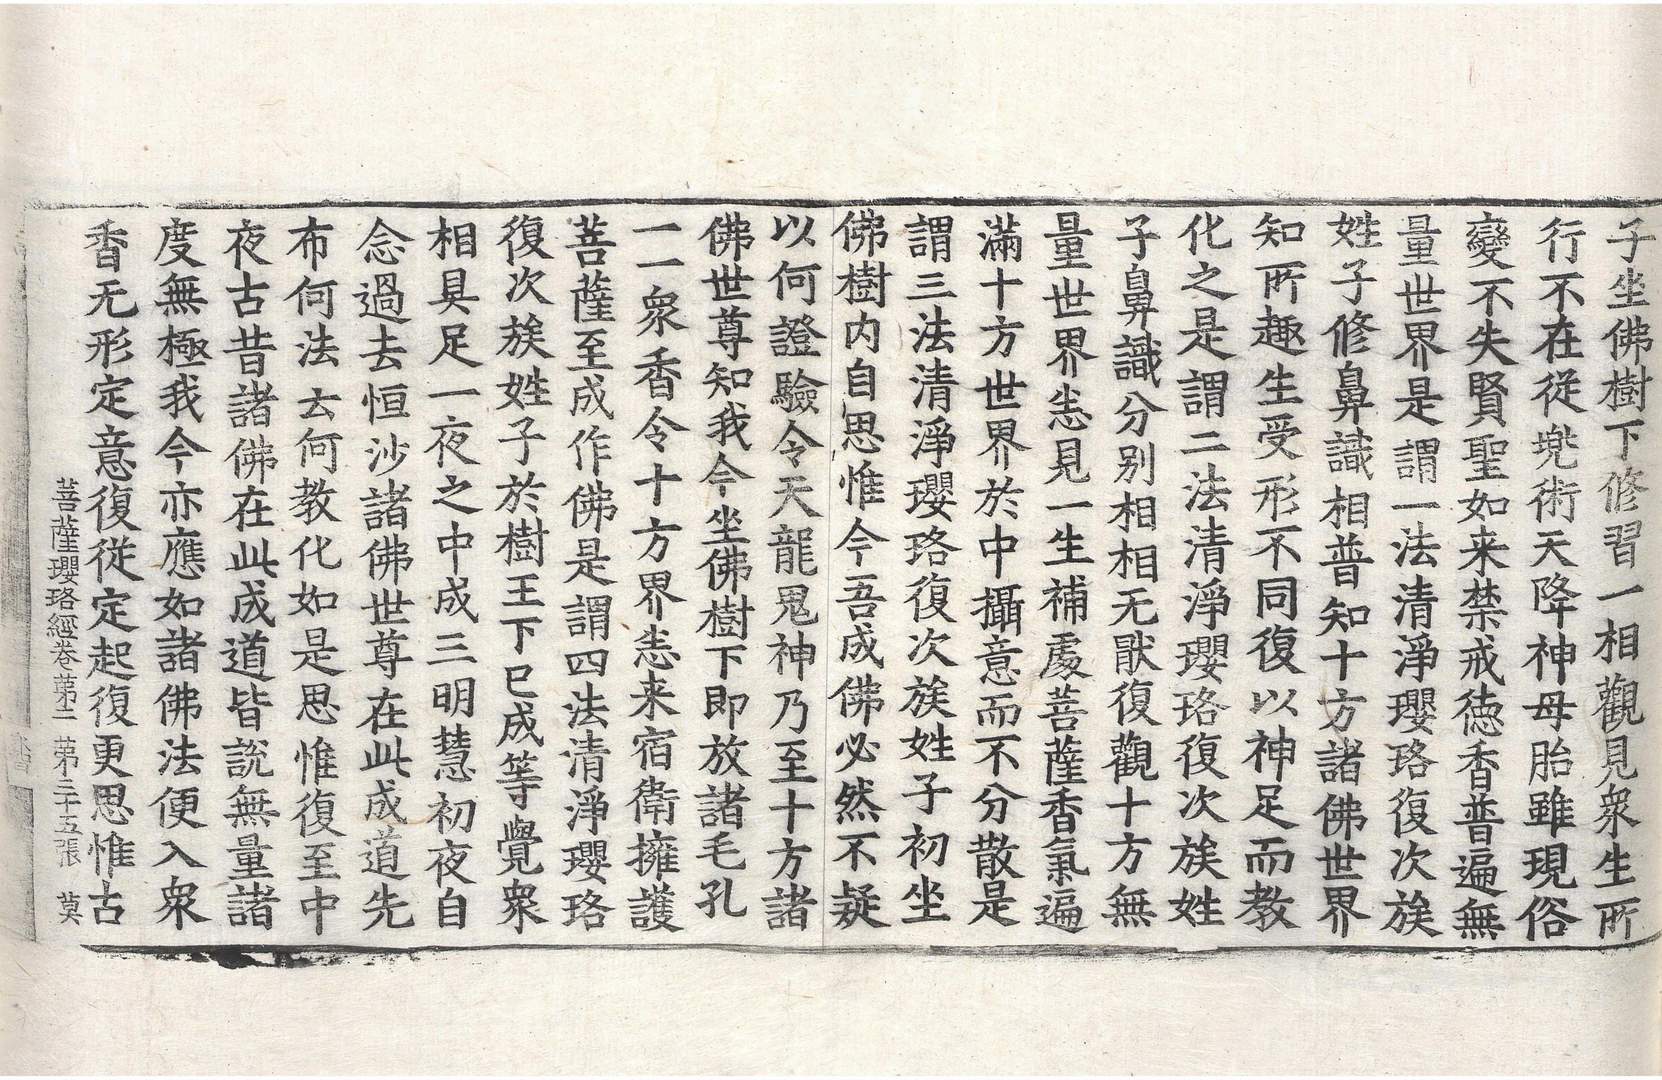 子坐佛樹下修習一相觀見衆生所
行不在從兠術天降神母胎雖現俗
變不失賢聖如来禁戒徳香普遍無
量世界是謂一法清淨瓔珞復次族
姓子修鼻識相普知十方諸佛世界
知所趣生受形不同復以神足而教
化之是謂二法清淨瓔珞復次族姓
子鼻識分別相相无猒復觀十方無
量世界悉見一生補處菩薩香氣遍
滿十方世界於中攝意而不分散是
謂三法清淨瓔珞復次族姓子初坐
佛樹内自思惟今吾成佛必然不疑
以何證驗令天龍鬼神乃至十方諸
佛世尊知我今坐佛樹下即放諸毛孔
一一衆香令十方界悉来宿衛擁護
菩薩至成作佛是謂四法清淨瓔珞
復次族姓子於樹王下已成等覺衆
相具足一夜之中成三明慧初夜自
念過去恒沙諸佛世尊在此成道先
布何法云何教化如是思惟復至中
夜古昔諸佛在此成道皆說無量諸
度無極我今亦應如諸佛法便入衆
香无形定意復從定起復更思惟古
菩薩瓔珞經卷苐二 苐三十五張 莫